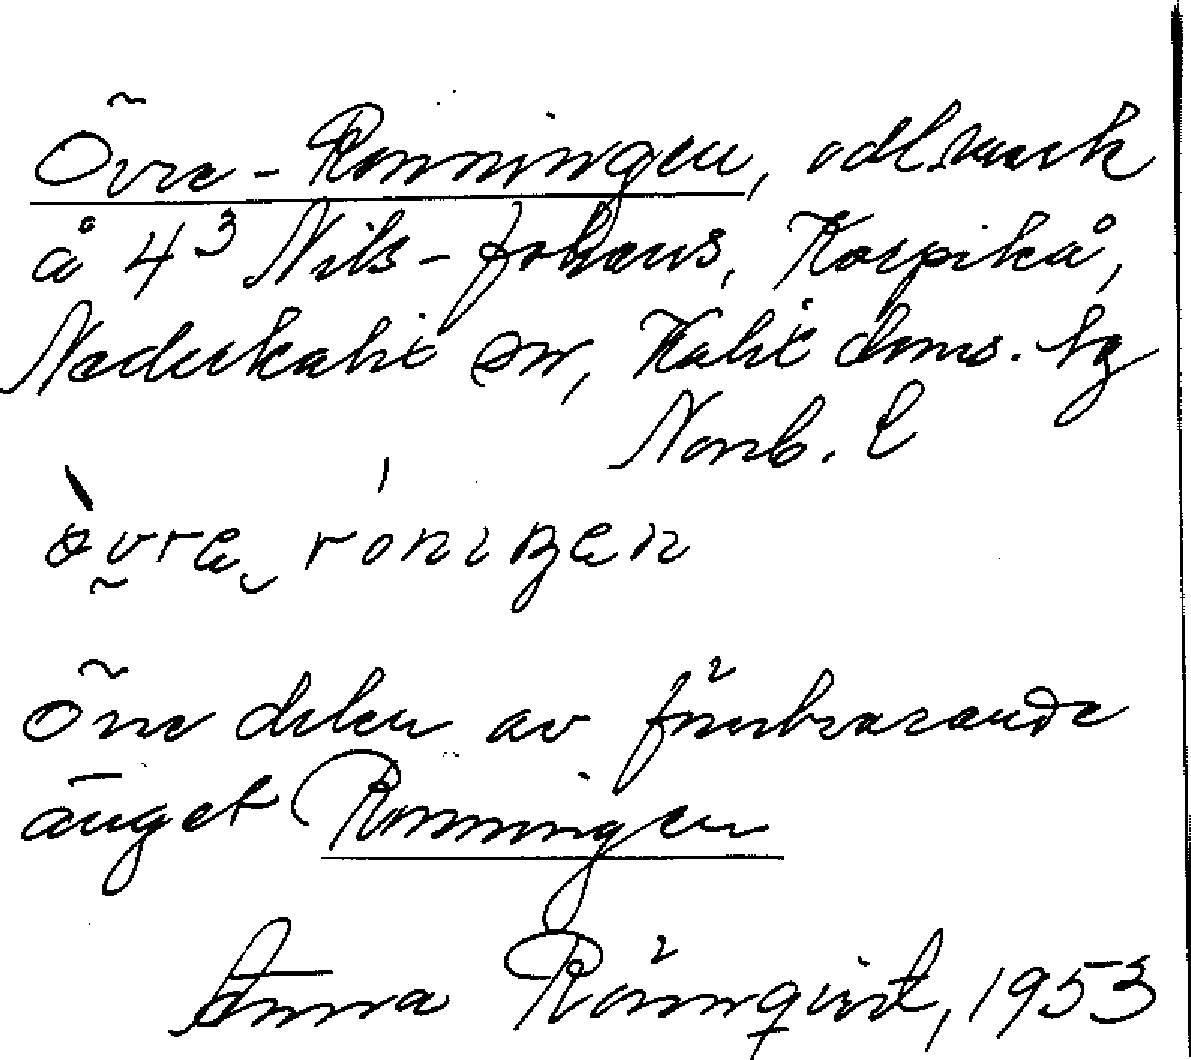 Övre-Ronningen, odl.mark
å 4³ Nils-Johans, Korpikå,
Nederkalix sn, Kalix doms. tg
Norrb. l
òvrα rónıŋen
Övre delen av förutvarande
änget Ronningen
Anna Rönnqvist, 1953